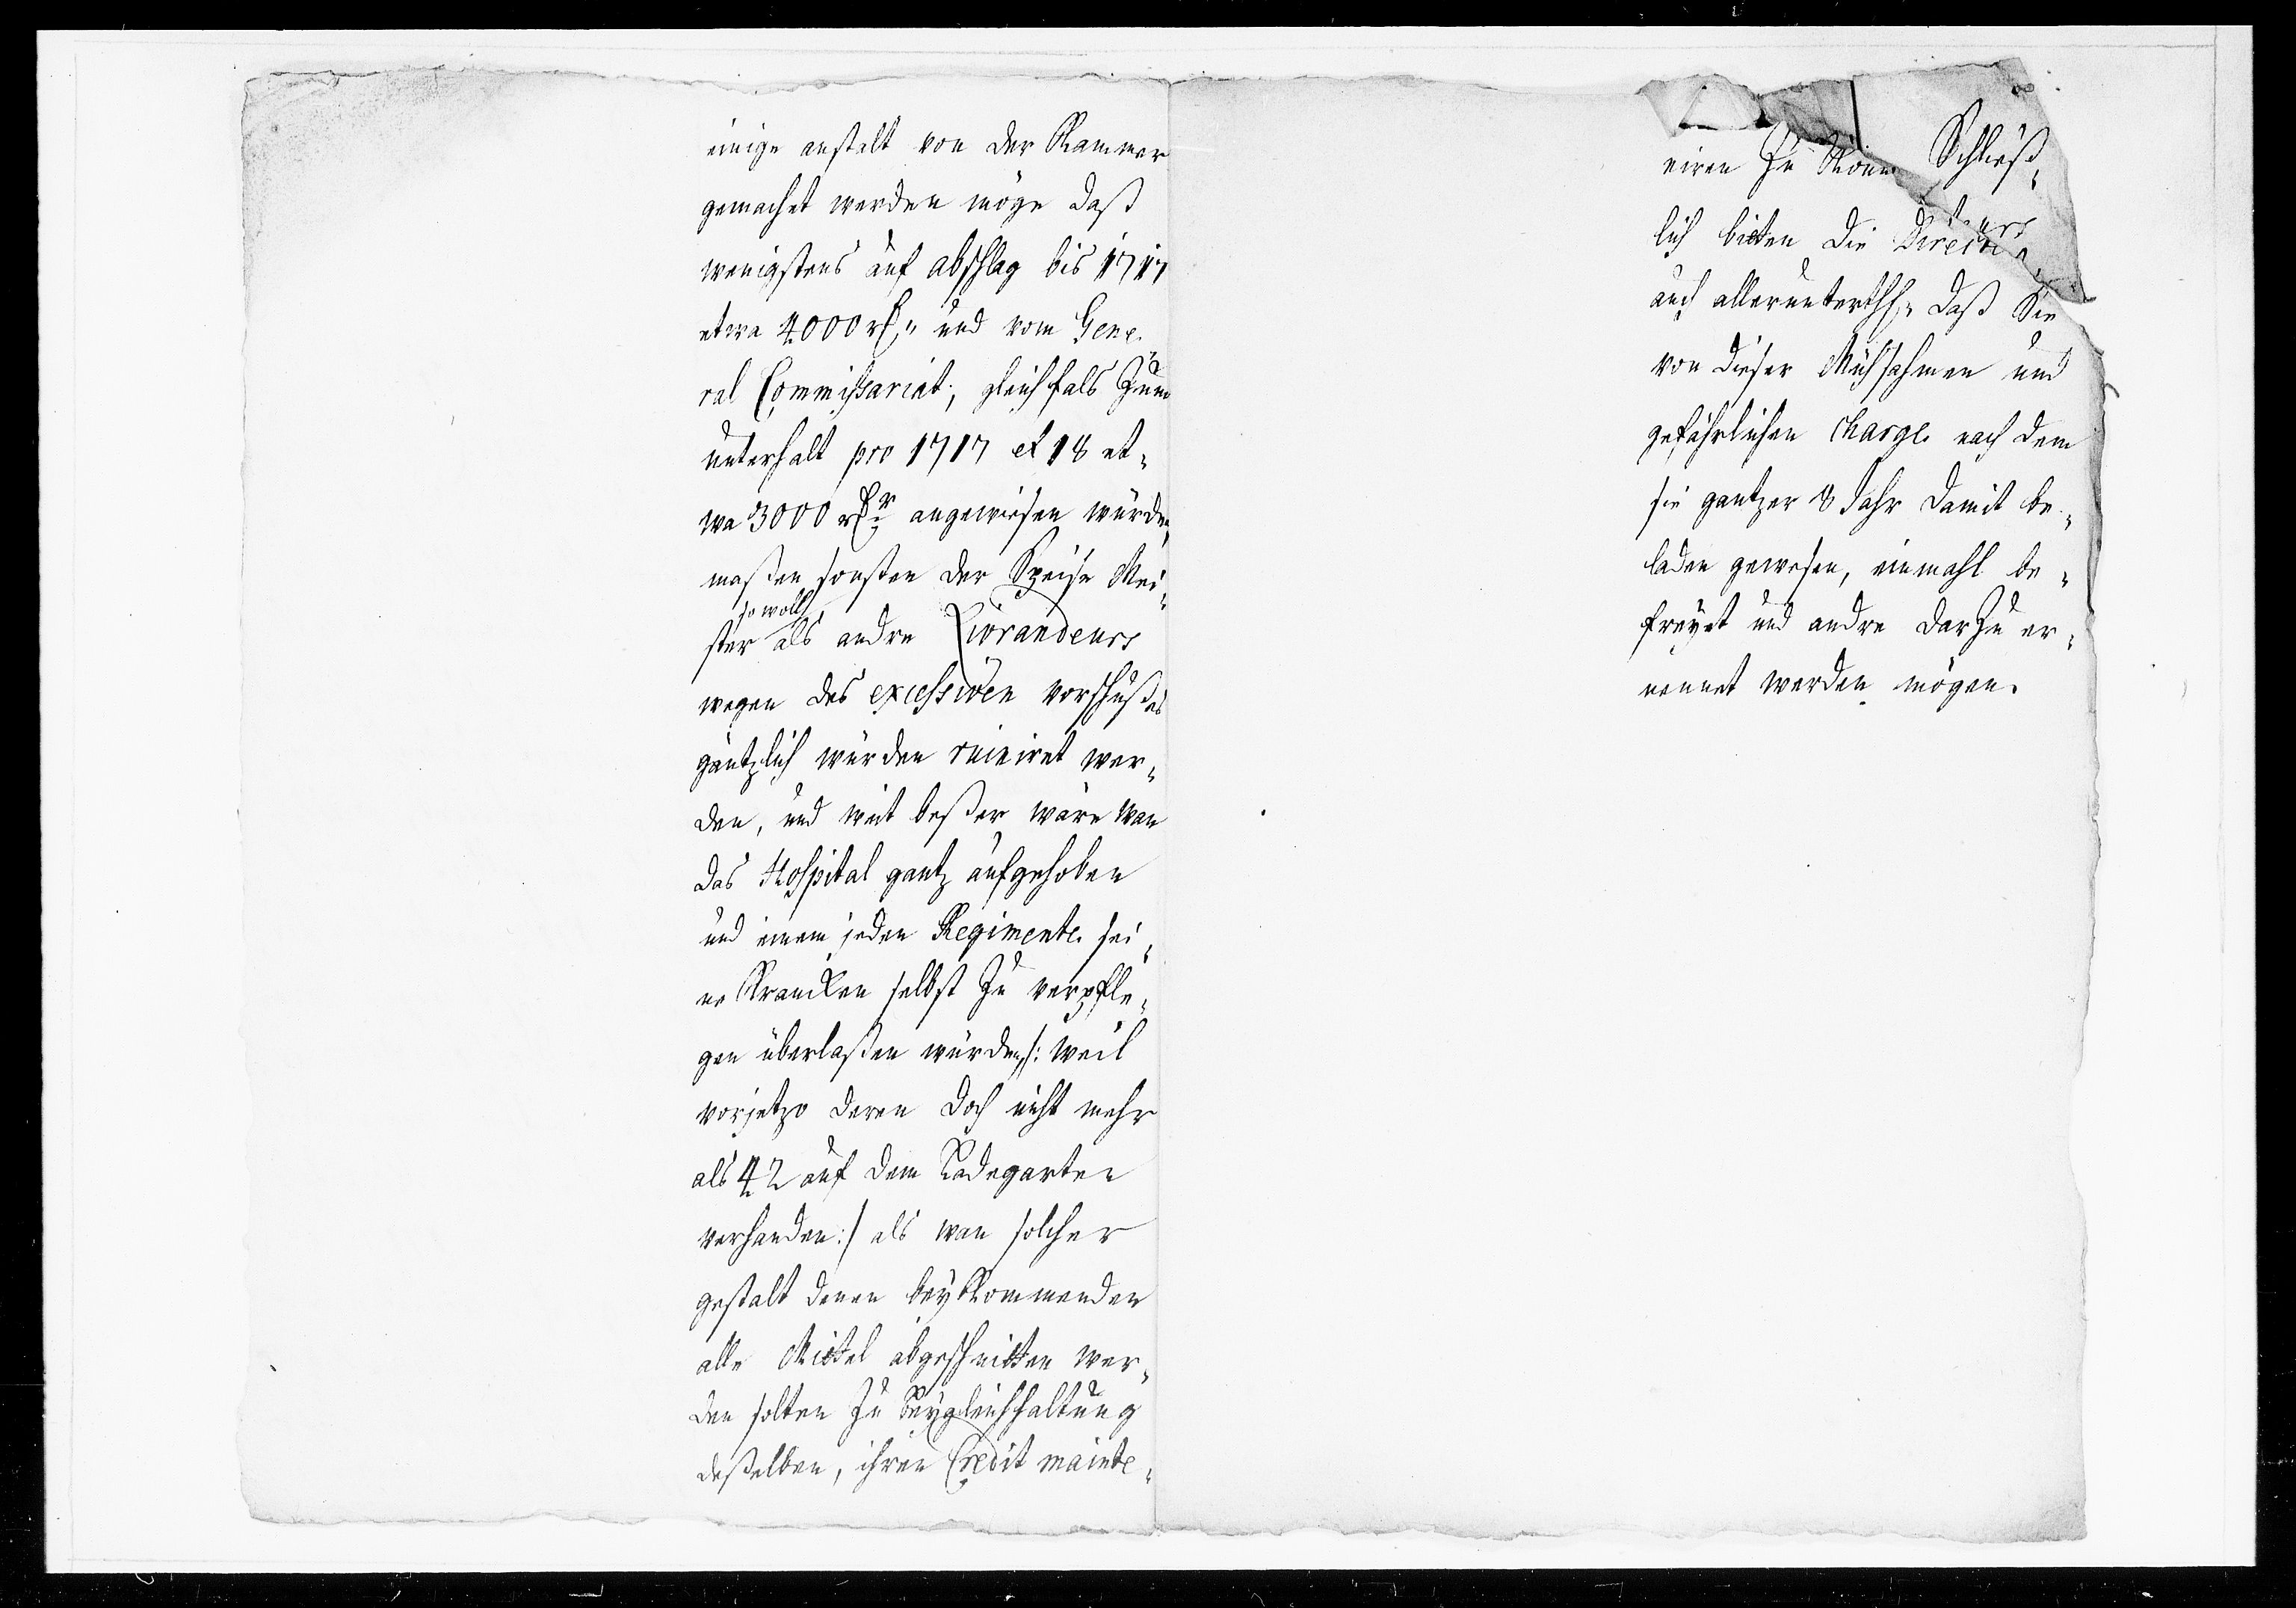 einige anstalt von der Kammer
gemachet werden möge daß
wenigstens auf abschlag bis 1717
etwa 4000 rt. und vom Gene¬
ral Commissariat, gleichfals zum
unterhalt pro 1717 et 18 et¬
wa 3000 rtr angewiesen würden,
maßen sonsten der Speise Mei¬
so wohl
ster als andre Livrandeurs
wegen des excessiven vorschußes
gäntzlich würden ruiniret wer¬
den, und weit beßer wäre wan
das Hospital gantz aufgehoben
und einem jeden Regimente sei¬
ne Krancken selbst zu verpfle¬
gen überlaßen würden /: weil
vorjetzo deren doch nicht mehr
als 42 auf dem Ladegarten
verhanden :/ als wan solcher
gestalt denen beykommenden
alle Mittel abgeschnitten wer¬
den solten zu beygleichhaltung
deßelben, ihren Credit mainte¬
niren zu Könn Schließ¬
lich bitten die Directeurs
auch allerunterth. daß Sie
von dieser Mühsahmen und
gefährlichen charge nach dem
sie gantzer 8 Jahr damit be¬
laden gewesen, einmahl be¬
freyet und andre darzu er¬
nennet werden mögen.